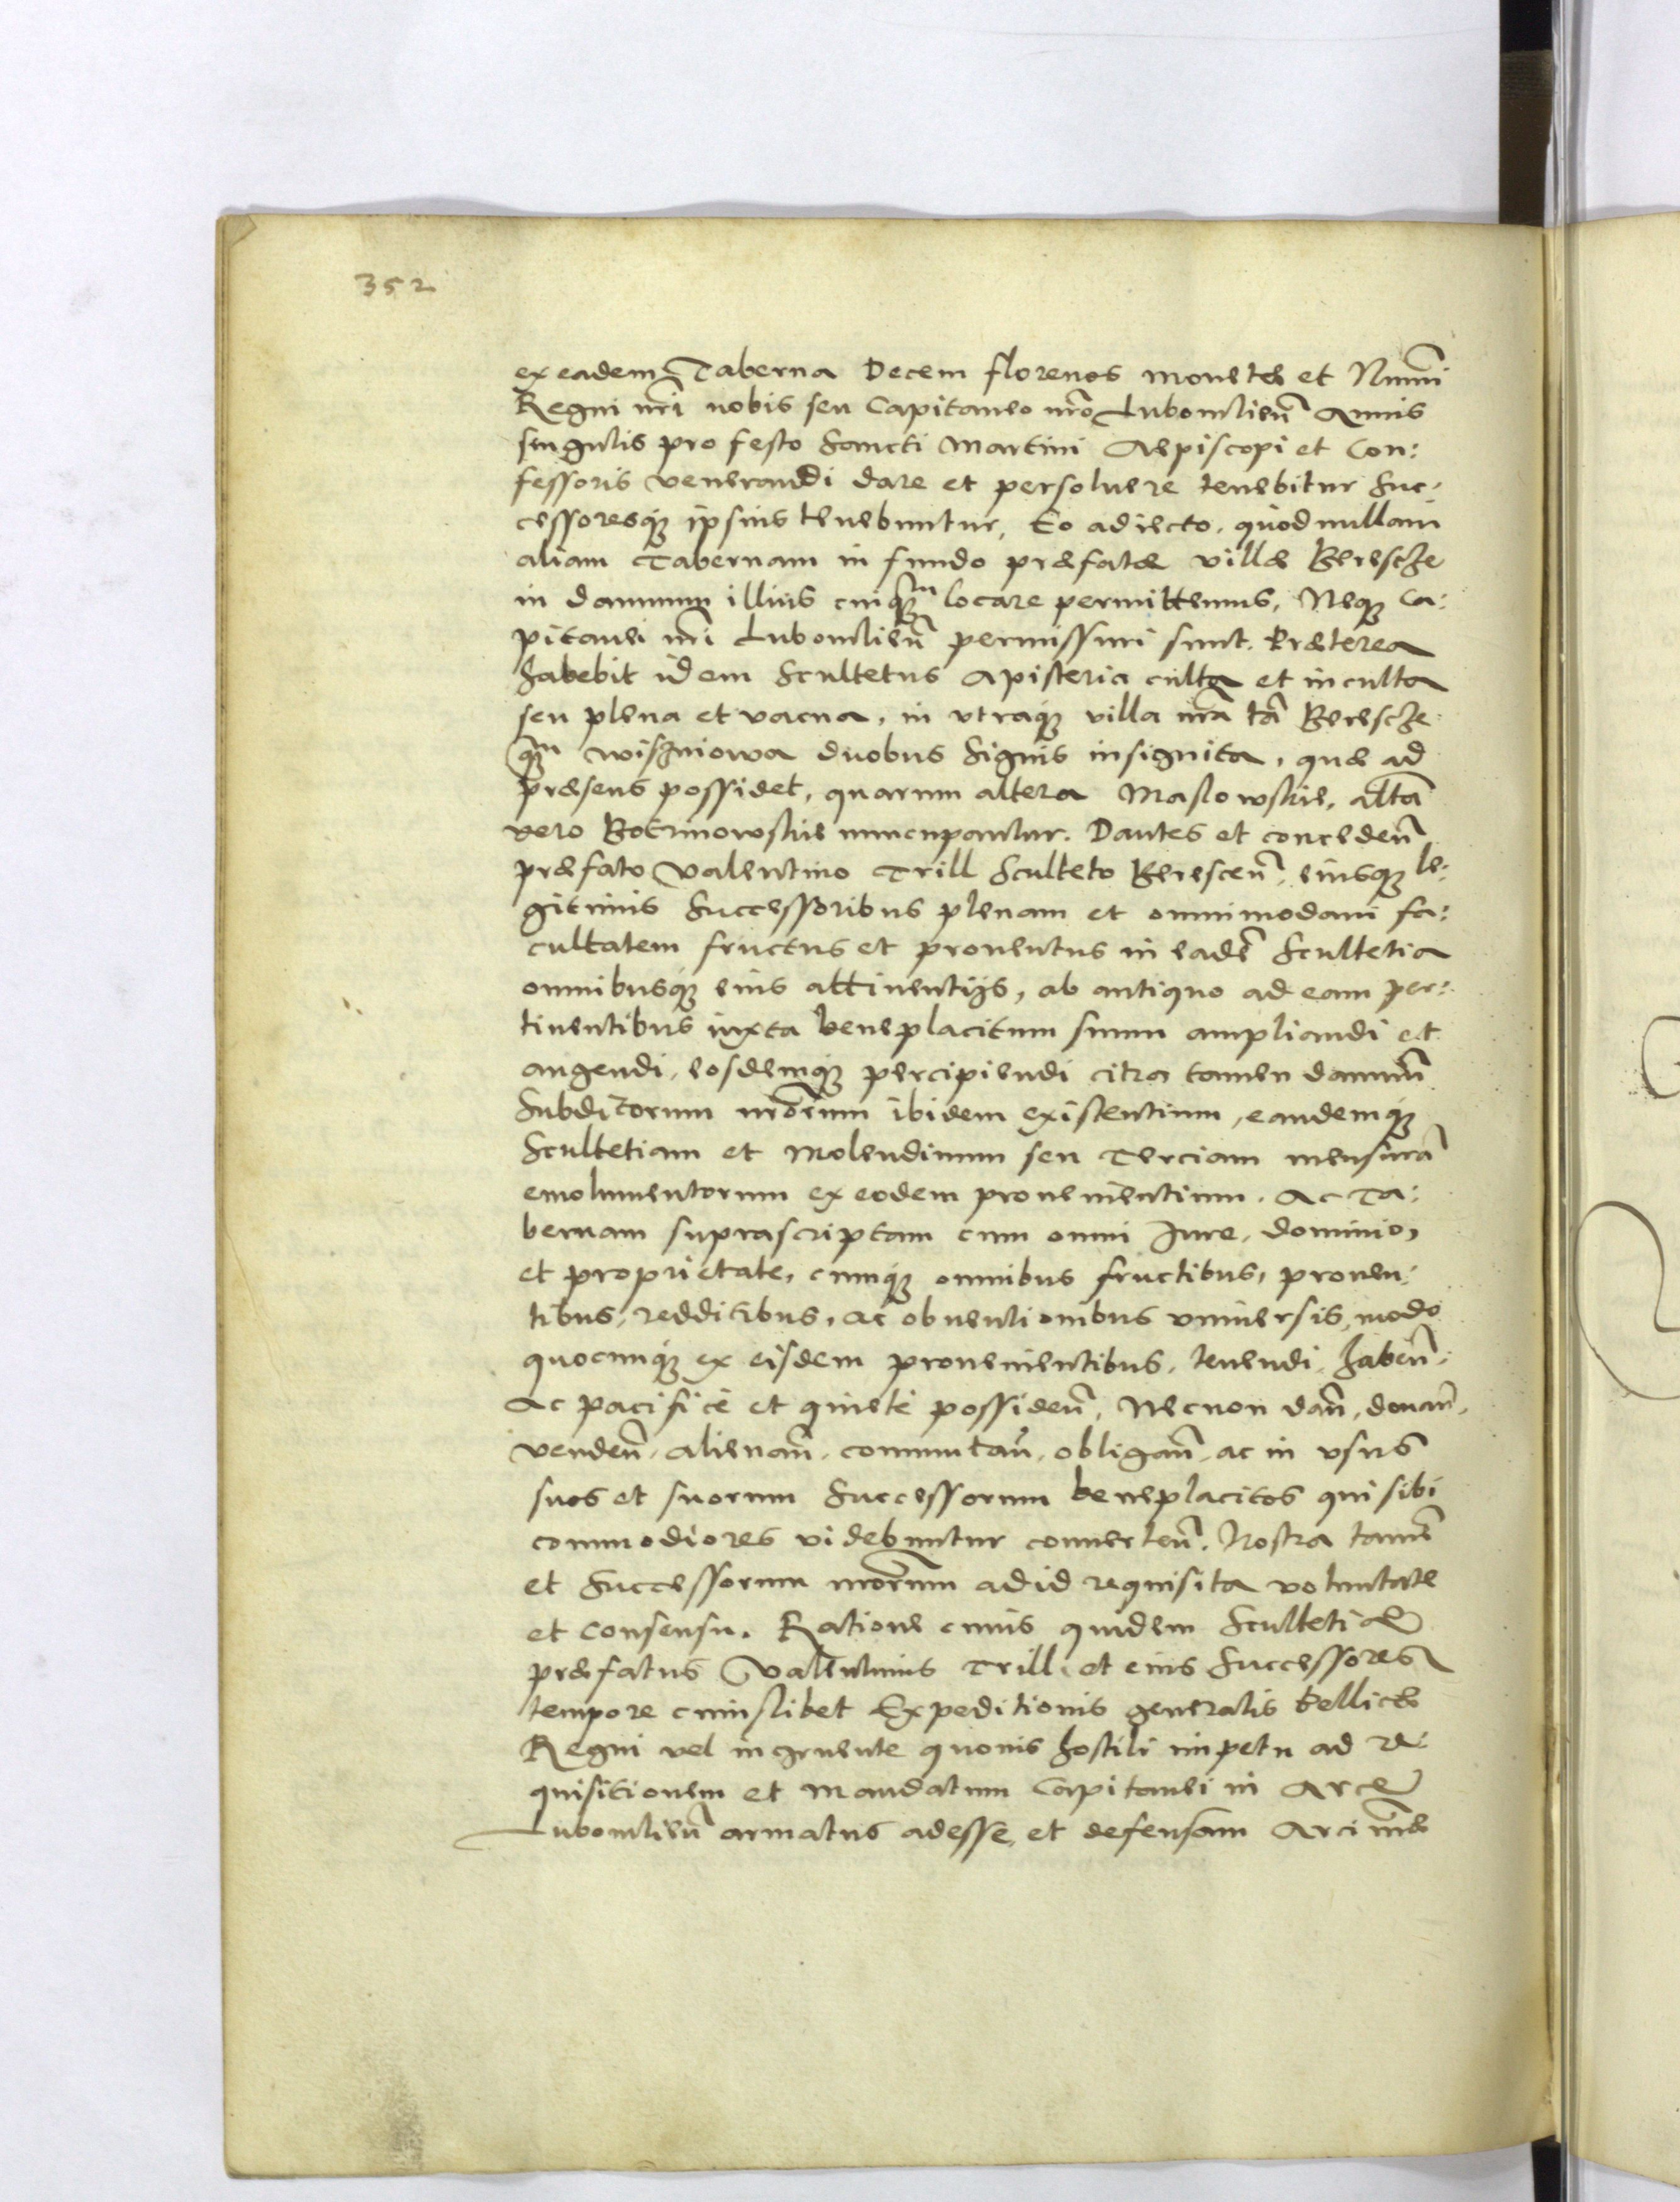 352
ex eadem Taberna Decem florenos monetæ et Num̃i
Regni nr̃i nobis seu Capitaneo nr̃o Lubomlien̄ Annis
singulis pro festo sancti Martini Aepiscopi et Con:
fessoris venerandi dare et persoluere tenebitur Suc:
cessoresq3 ipsius tenebuntur, Eo adiecto, quod nullam
aliam Tabernam in fundo præfatæ villæ Berescze
in damnum illius cuiq3m locare permittemus, Neq3 Ca:
pitanei nr̃i Lubomlien̄ permissuri sunt. Præterea
habebit idem Scultetus Apisteria culta et inculta
seu plena et vacua, in vtraq3 villa nr̃a tā Berescze
q3m Wiszniowa duobus signis insignita, quæ ad
præsens possidet, quarum altera Maslowskie, altā
vero Botrinowskie nuncupantur. Dantes et conceden̄
præfato Valentino Trill Sculteto Berescen̄, eiusq3 le:
gitimis Successoribus plenam et omnimodam fa:
cultatem fructus et prouentus in eadē Scultetia
omnibusq3 eius attinentijs, ab antiquo ad eam per:
tinentibus iuxta beneplacitum suum ampliandi et
augendi, eosdemq3 percipiendi citra tamen damnum̄
subditorum nr̃orum ibidem existentium, eandemq3
Scultetiam et Molendinum seu Terciam mensurā
emolumentorum ex eodem prouenientium. Ac Ta:
bernam suprascriptam cum omni Jure, dominio,
et proprietate, cumq3 omnibus fructibus, prouen:
tibus, redditibus, ac obuentionibus vniuersis, modo
quocunq3 ex eisdem prouenientibus, tenendi, haben̄:
Ac pacificè et quietè possiden̄, Necnon dan̄, donan̄,
venden̄, alienan̄, commutan̄, obligan̄, ac in vsus
suos et suorum Successorum beneplacitos qui sibi
commodiores videbuntur conuerten̄. Nostra tamē
et Successorum nr̃orum ad id requisita voluntate
et consensu. Ratione cuius quidem Scultetiæ
præfatus Valentinus Trill, et eius Successores
tempore cuiuslibet Expeditionis generalis bellicæ
Regni vel ingruente quouis hostili impetu ad re:
quisitionem et mandatum Capitanei in Arce
Lubomlien̄ armatus adesse, et defensam Arci nr̃æ